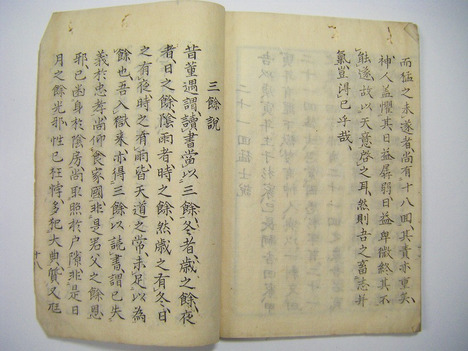 而猛之未遂者尚有十八回其責亦重矣
神人蓋懼其日益孱弱日益卑微終其不
能遂故以天意啓之耳然則吾之蓄志并
氣豈得已乎哉
三餘說
昔董遇謂讀書當以三餘冬者歲之餘夜
者日之餘陰雨者時之餘然歲之有冬日
之有夜時之有雨皆天道之常未足以為
餘也吾入獄來亦得三餘以讀書謂已失
義於忠孝尚仰食家國非是君父之餘恩
邪已函身於陰房尚取照於戶隙非是日
月之餘光邪性已狂悖多犯大典質又尫
十八